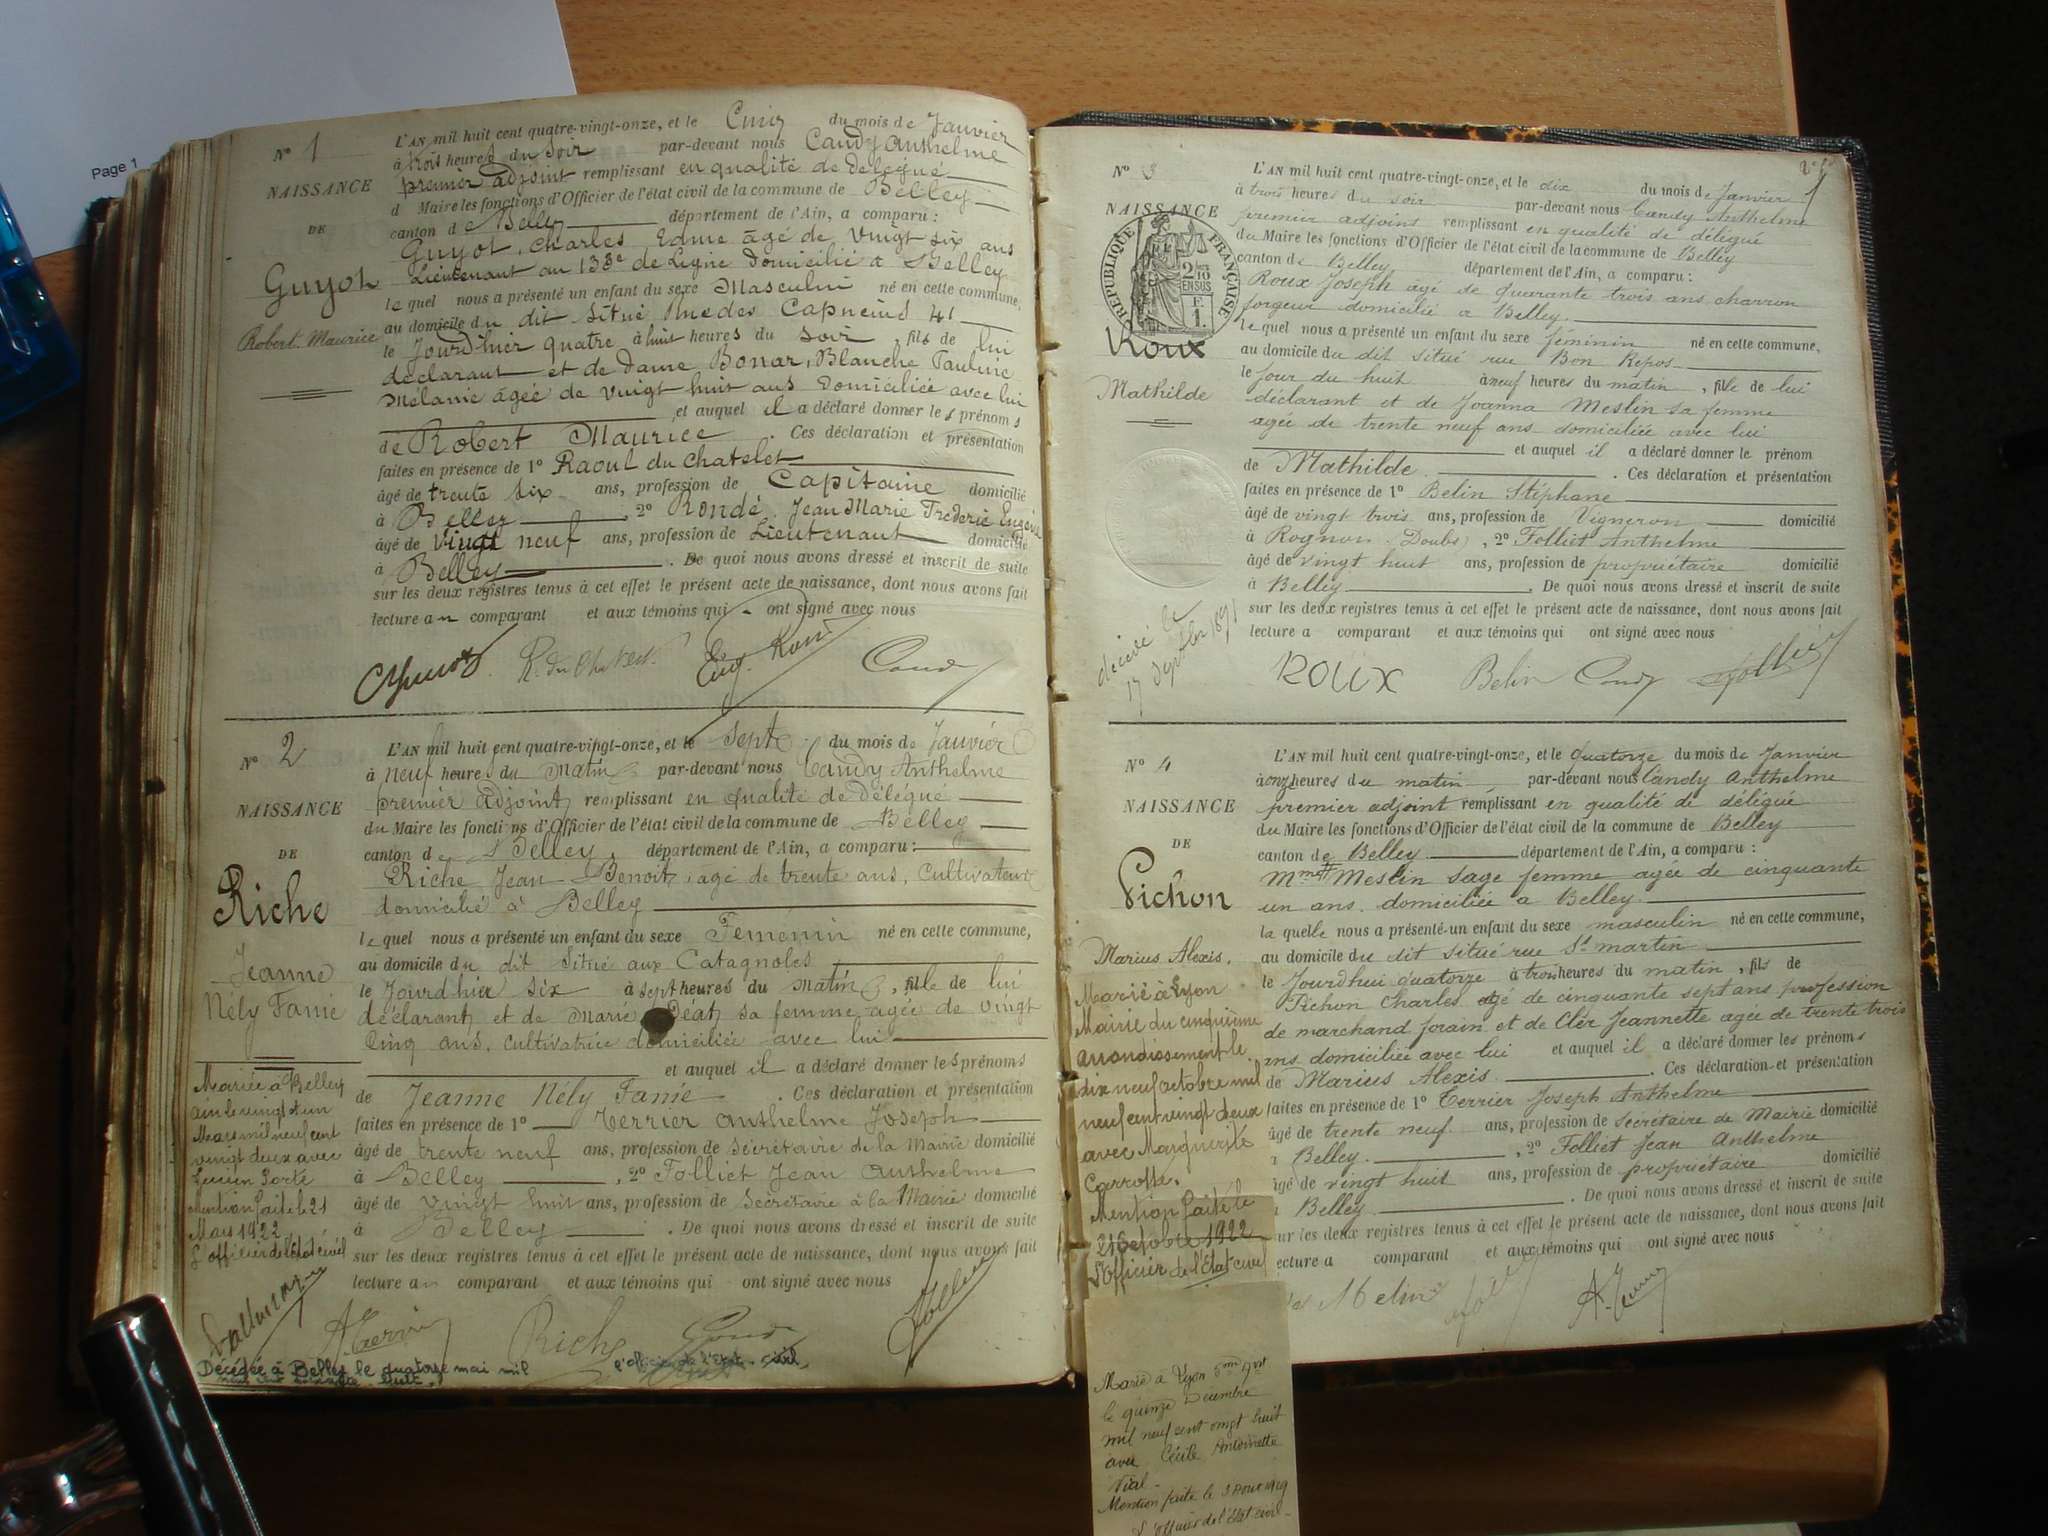 Page 1
N° 1
NAISSANCE
DE
Guyot
Robert Maurice
L'AN mil huit cent quatre-vingt-onze, et le Cinq du mois de Janvier
à trois heures du Soir par-devant nous Candy Anthelme
premier adjoint remplissant en qualité de délégué
d Maire les fonctions d'Officier de l'état civil de la commune de Belley
canton de Belley département de l'Ain, a comparu :
Guyot, Charles, Edme âgé de vingt six ans
Lieutenant au 133e de Ligne domicilié à Belley
le quel nous a présenté un enfant du sexe Masculin né en cette commune,
au domicile du dit situé rue des Capucins 41
le Jourd'hier quatre à huit heures du soir, fils de lui
déclarant et de dame Bonar, Blanche Pauline
Mélanie âgée de vingt huit ans domiciliée avec lui
et auquel il a déclaré donner les prénoms
de Robert Maurice. Ces déclaration et présentation
faites en présence de 1° Raoul du Chatelet
âgé de trente six ans, profession de Capitaine domicilié
à Belley, 2° Rondé, Jean Marie Frederic Eugène
âgé de vingt neuf ans, profession de Lieutenant domicilié
à Belley. De quoi nous avons dressé et inscrit de suite
sur les deux registres tenus à cet effet le présent acte de naissance, dont nous avons fait
lecture au comparant et aux témoins qui ont signé avec nous
R. du Chatelet Candy
N° 2
NAISSANCE
DE
Riche
Jeanne
Nély Fanie
L'AN mil huit cent quatre-vingt-onze, et le Sept du mois de Janvier
à neuf heures du Matin par-devant nous Candy Anthelme
premier adjoint remplissant en qualité de délégué
du Maire les fonctions d'Officier de l'état civil de la commune de Belley
canton de Belley, département de l'Ain, a comparu :
Riche Jean Benoit, agé de trente ans, Cultivateur
domicilié à Belley
le quel nous a présenté un enfant du sexe Féminin né en cette commune,
au domicile du dit situé aux Catagnoles
le Jourd'hier six à sept heures du matin, fille de lui
déclarant et de Marie Déat sa femme agée de vingt
Cinq ans, cultivatrice domiciliée avec lui
et auquel il a déclaré donner les prénoms
de Jeanne Nély Fanie. Ces déclaration et présentation
faites en présence de 1° Terrier Anthelme Joseph
âgé de trente neuf ans, profession de Secrétaire de la Mairie domicilié
à Belley, 2° Folliet Jean Anthelme
âgé de vingt huit ans, profession de Secrétaire à la Mairie domicilié
à Belley. De quoi nous avons dressé et inscrit de suite
sur les deux registres tenus à cet effet le présent acte de naissance, dont nous avons fait
lecture au comparant et aux témoins qui ont signé avec nous
Mariée à Belley
Ain le vingt et un
Mars mil neuf cent
vingt deux avec
Lucien Porte
mention faite le 21
Mars 1922
L'officier de l'état civil
A. Terrier Riche Candy Folliet
Décédée à Belley le quatorze mai mil
l'officier de l'Etat-civil,
N° 3
NAISSANCE
RÉPUBLIQUE FRANÇAISE
2/10 EN SUS
F. 1.
Roux
Mathilde
L'AN mil huit cent quatre-vingt-onze, et le dix du mois de Janvier
à trois heures du soir par-devant nous Candy Anthelme
premier adjoins remplissant en qualité de délégué
du Maire les fonctions d'Officier de l'état civil de la commune de Belley
canton de Belley département de l'Ain, a comparu :
Roux Joseph agé de quarante trois ans, charron
forgeur domicilié à Belley.
le quel nous a présenté un enfant du sexe féminin né en cette commune,
au domicile du dit situé rue Bon Repos
le Jour du huit à neuf heures du matin, fille de lui
déclarant et de Joanna Meslin sa femme
agée de trente neuf ans domiciliée avec lui
et auquel il a déclaré donner le prénom
de Mathilde. Ces déclaration et présentation
faites en présence de 1° Belin Stéphane
âgé de vingt trois ans, profession de Vigneron domicilié
à Rognon (Doubs), 2° Folliet Anthelme
âgé de vingt huit ans, profession de propriétaire domicilié
à Belley. De quoi nous avons dressé et inscrit de suite
sur les deux registres tenus à cet effet le présent acte de naissance, dont nous avons fait
lecture a comparant et aux témoins qui ont signé avec nous
décédé le
17 Septbre 1891
ROUX Belin Candy Folliet
N° 4
NAISSANCE
DE
Pichon
Marius Alexis.
L'AN mil huit cent quatre-vingt-onze, et le quatorze du mois de Janvier
à onze heures du matin par-devant nous Candy Anthelme
premier adjoint remplissant en qualité de délégué
du Maire les fonctions d'Officier de l'état civil de la commune de Belley
canton de Belley département de l'Ain, a comparu :
Mme Meslin sage femme agée de cinquante
un ans domiciliée à Belley.
la quelle nous a présenté un enfant du sexe masculin né en cette commune,
au domicile du dit situé rue St martin
le Jourd'hui quatorze à trois heures du matin, fils de
Pichon Charles agé de cinquante sept ans profession
de marchand forain et de Cler Jeannette agée de trente trois
ans domiciliée avec lui et auquel il a déclaré donner les prénoms
de Marius Alexis. Ces déclaration et présentation
faites en présence de 1° Terrier Joseph Anthelme
âgé de trente neuf ans, profession de Secrétaire de Mairie domicilié
Belley, 2° Folliet Jean Anthelme
âgé de vingt huit ans, profession de propriétaire domicilié
Belley. De quoi nous avons dressé et inscrit de suite
sur les deux registres tenus à cet effet le présent acte de naissance, dont nous avons fait
lecture a comparant et aux témoins qui ont signé avec nous
Marié à Lyon
Mairie du cinquième
arrondissement le
dix neuf octobre mil
neuf cent vingt deux
avec Marguerite
Carrotte.
Mention faite le
21 Octobre 1922
L'Officier de l'Etat civil
Marié à Lyon
le quinze Décembre
mil neuf cent vingt huit
avec Cécile Antoinette
Vial.
Mention faite le 3 Aout 1929
L'officier de l'Etat civil